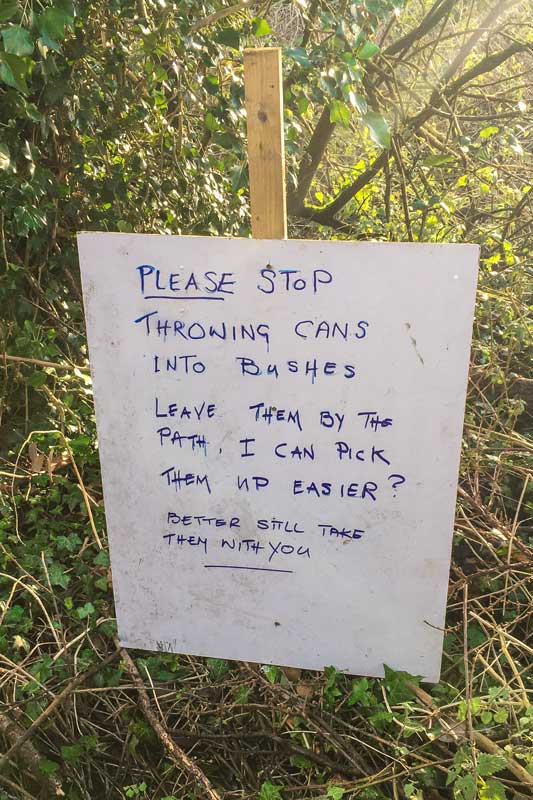 PLEASE STOP
THROWING CANS
INTO BUSHES
LEAVE THEM BY THE
PATH, I CAN PICK
THEM UP EASIER?
BETTER STILL TAKE
THEM WITH YOU